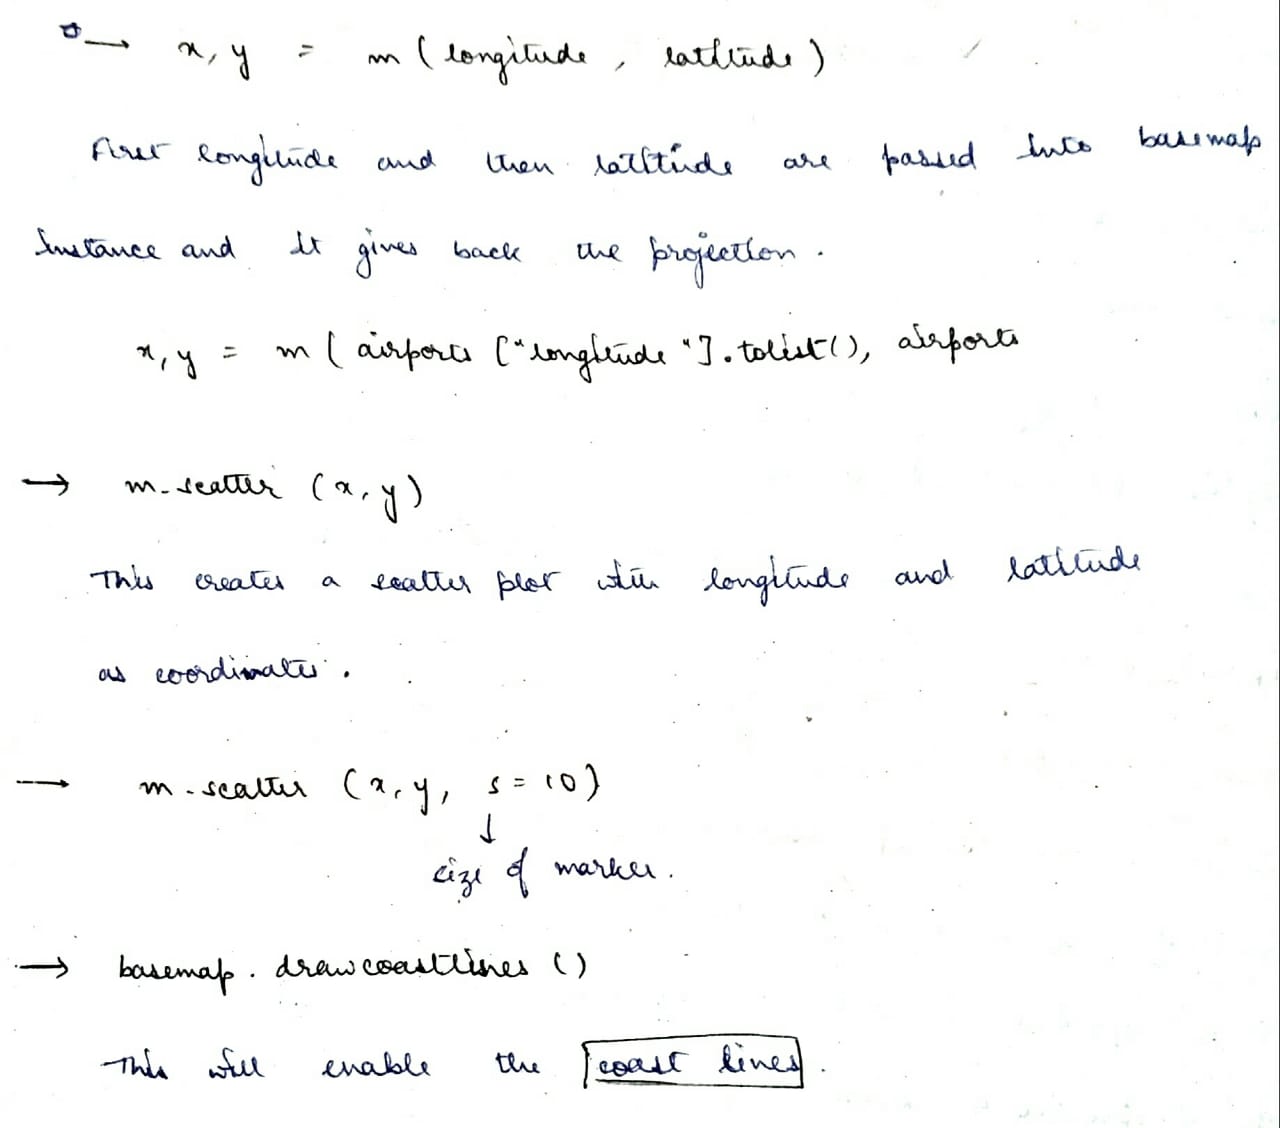 → x, y = m ( longitude , latitude )
First longitude and then latitude are passed into basemap
instance and it gives back the projection .
x, y = m ( airports ["longitude"].tolist(), airports
→ m.scatter ( x, y )
This creates a scatter plot with longitude and latitude
as coordinates .
→ m.scatter ( x, y, s = 10 )
↓
size of marker .
→ basemap . drawcoastlines ( )
This will enable the coast lines .